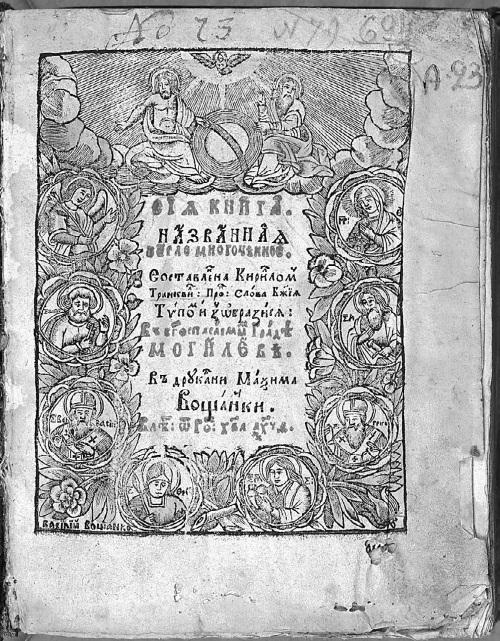 No 23 N 79 60
A 93
СІѦ КНИГА.
НАЗВАННАѦ
ПЕРЛО МНОГОЦѢННОЕ.
Составлена Кирилом
Транскви: Про: Слова Бжїѧ
Тѵпом и ꙋѡбразисѧ:
Въ бгоспасаемом Градѣ
МОГИЛЕВѢ.
Въ дрꙋкарни Маѯима
Вощанки.
Василїй Вощанка